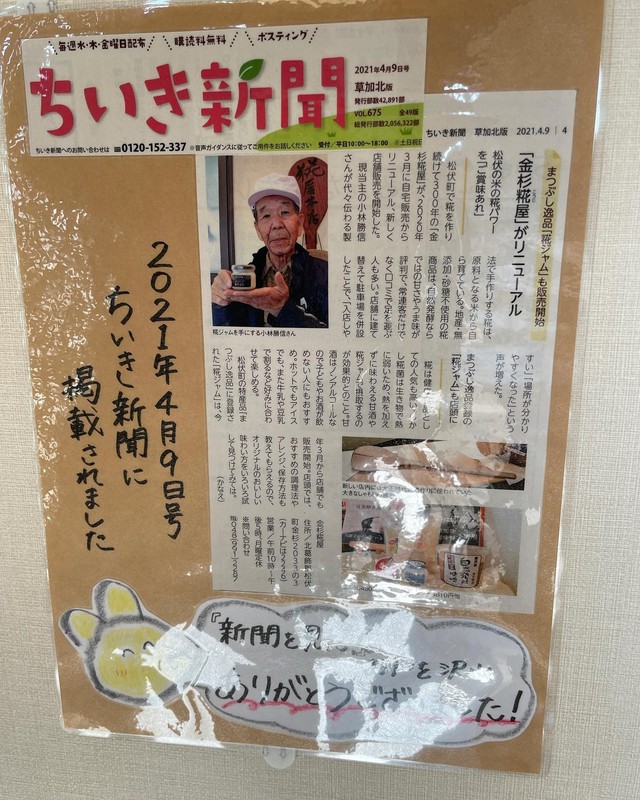 毎週水・木・金曜日配布
購読料無料
ポスティング
ちいき新聞
2021年4月9日号
草加北版
発行部数42,891部
VOL.675 全49版
総発行部数2,056,322部
ちいき新聞へのお問い合わせは 0120-152-337 ※音声ガイダンスに従ってご用件をお話しください 受付/平日10:00〜18:00 ※土日祝
ちいき新聞 草加北版 2021.4.9 4
まつぶし逸品「糀ジャム」も販売開始
「金杉糀屋」がリニューアル
松伏の米の糀パワー
を「ご賞味あれ」
松伏町で糀を作り
続けて300年の「金
杉糀屋」が、2020年
3月に自宅販売から
リニューアル、新しく
店舗販売を開始した。
現当主の小林勝信
さんが代々伝わる製
法で手作りする糀は、
原料となる米から自
ら育てている。地産・無
添加・砂糖不使用の糀
商品は、自然発酵なら
ではの甘さやうま味が
評判で、常連客だけで
なく口コミで足を運ぶ
人も多い。店舗に建て
替えて駐車場を併設
したことで、「入店しや
すい」「場所が分かり
やすくなった」という
声が増えた。
まつぶし逸品登録の
「糀ジャム」も店頭に
糀は健康食品とし
ての人気も高い。しか
し糀菌は生き物で熱
に弱いため、熱を加え
ずに味わえる甘酒や
糀ジャムも摂取するの
が効果的とのこと。甘
酒はノンアルコールな
ので子どもやお酒が飲
めない人にもおすす
め。ホットでもアイス
でも、また牛乳や豆乳
で割るなど好みに合わ
せて楽しめる。
松伏町の特産品「ま
つぶし逸品」に登録さ
れた「糀ジャム」は、今
年3月から店舗でも
販売開始。店頭では、
おすすめの調理法や
アレンジ、保存方法も
教えてもらえるので、
オリジナルのおいしい
味わい方をいろいろ試
して見つけてみては。
(かなえ)
金杉糀屋
住所/北葛飾郡松伏
営業/午前10時〜午
後5時、月曜定休
※問い合わせ
糀ジャムを手にする小林勝信さん
2021年4月9日号
ちいき新聞に
掲載されました
『新聞を見
ありがとうござ した!